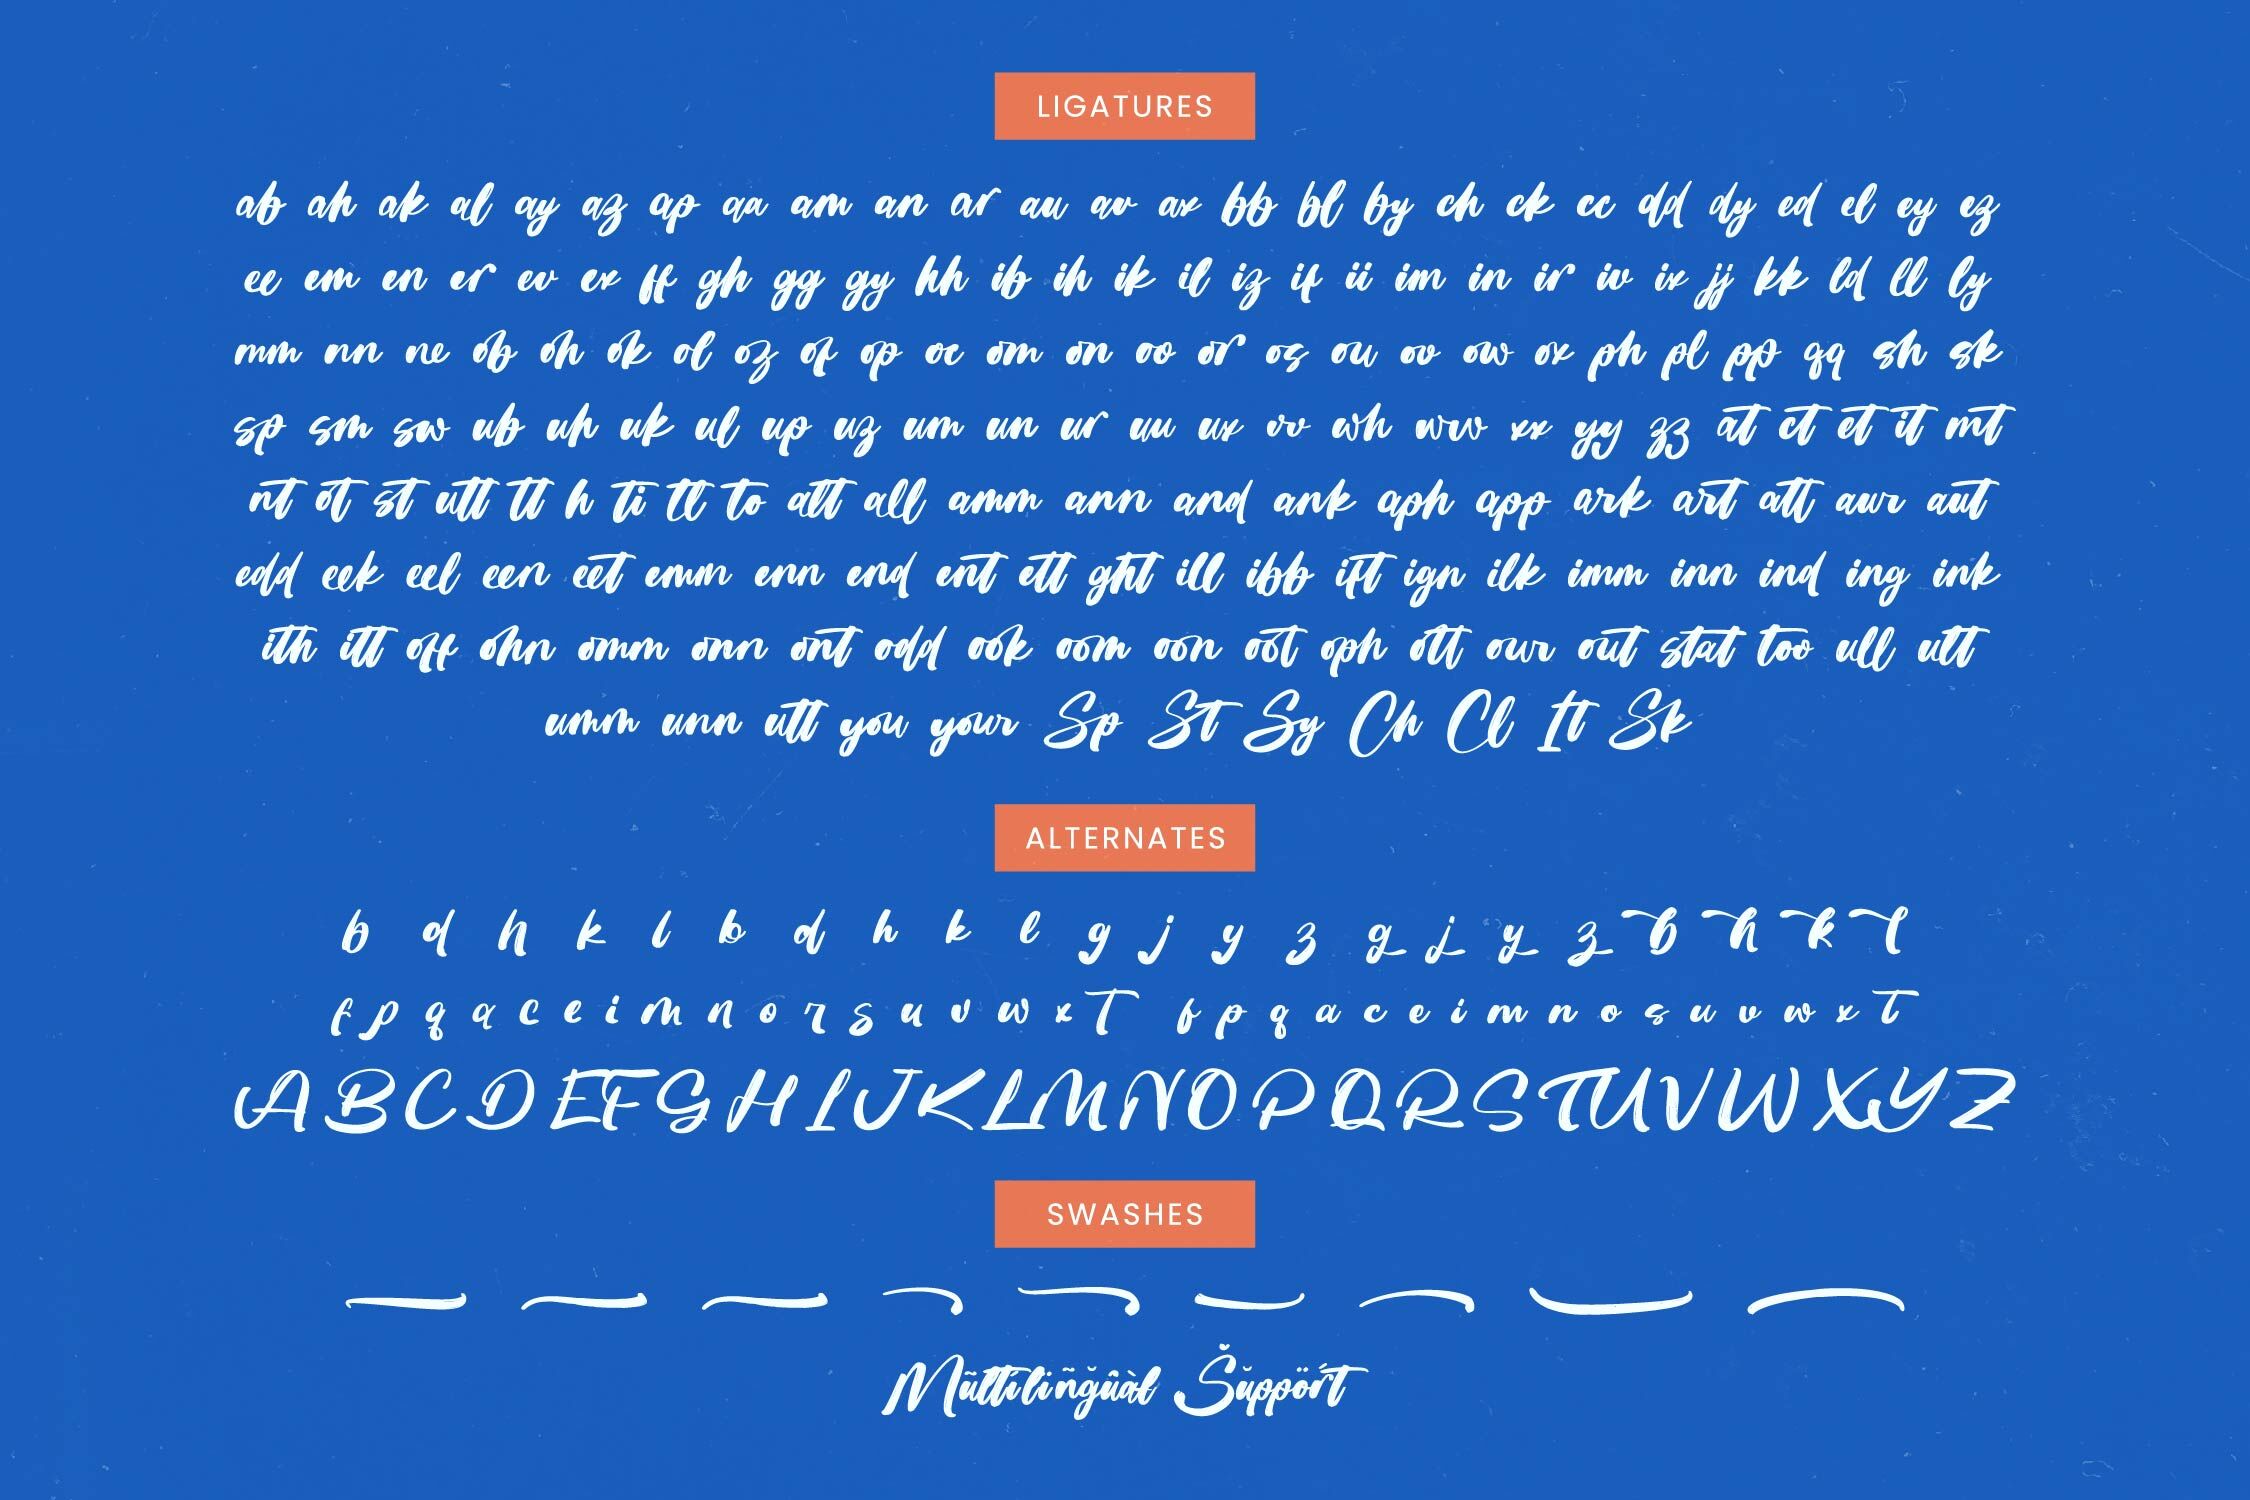 LIGATURES
ab ah ak al ay az ap aa am an ar au av ax bb bl by ch ck cc dd dy ed el ey ez
ee em en er ev ex ff gh gg gy hh ib ih ik il iz if ii im in ir iv ix jj kk ld ll ly
mm nn ne ob oh ok ol oz of op oc om on oo or os ou ov ow ox ph pl pp qq sh sk
sp sm sw ub uh uk ul up uz um un ur uu ux vv wh ww xx yy zz at ct et it mt
nt ot st utt tt h ti tl to att all amm ann and ank aph app ark art att awr aut
edd eek eel een eet emm enn end ent ett ght ill ibb ift ign ilk imm inn ind ing ink
ith itt off ohn omm onn ont odd ook oom oon oot oph ott our out stat too ull utt
umm unn utt you your Sp St Sy Ch Cl It Sk
ALTERNATES
b d h k l b d h k l g j y z g j y z b h k l
f p q a c e i m n o r s u v w x T f p q a c e i m n o s u v w x T
A B C D E F G H I J K L M N O P Q R S T U V W X Y Z
SWASHES
Mũltílíñğûàl Šŭppöŕt